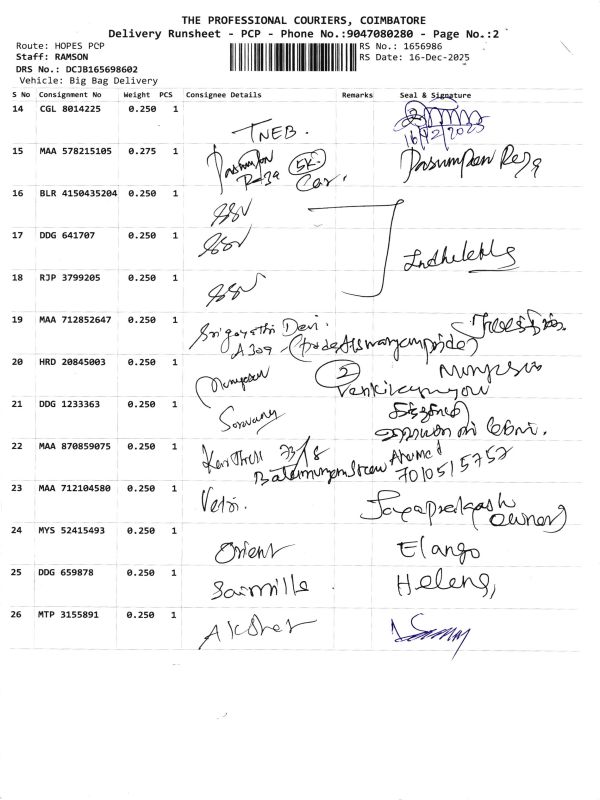 THE PROFESSIONAL COURIERS, COIMBATORE
Delivery Runsheet - PCP - Phone No.:9047080280 - Page No.:2
Route: HOPES PCP
RS No.: 1656986
Staff: RAMSON
RS Date: 16-Dec-2025
DRS No.: DCJB165698602
Vehicle: Big Bag Delivery
S No Consignment No Weight PCS Consignee Details Remarks Seal & Signature
14 CGL 8014225 0.250 1 TNEB.
16/12/2025
15 MAA 578215105 0.275 1 Pasumpon Raja 5K. Car. Pasumpon Raja
16 BLR 4150435204 0.250 1 SSV
17 DDG 641707 0.250 1 SSV
18 RJP 3799205 0.250 1 SSV
19 MAA 712852647 0.250 1 Srigayathi Devi.
A309
20 HRD 20845003 0.250 1 2
21 DDG 1233363 0.250 1
22 MAA 870859075 0.250 1 73/8 Ahamed
7010515752
23 MAA 712104580 0.250 1 Vetri. Jayaprakash
Owner)
24 MYS 52415493 0.250 1 Orient Elango
25 DDG 659878 0.250 1 Saimills. Helena,
26 MTP 3155891 0.250 1 Aksher